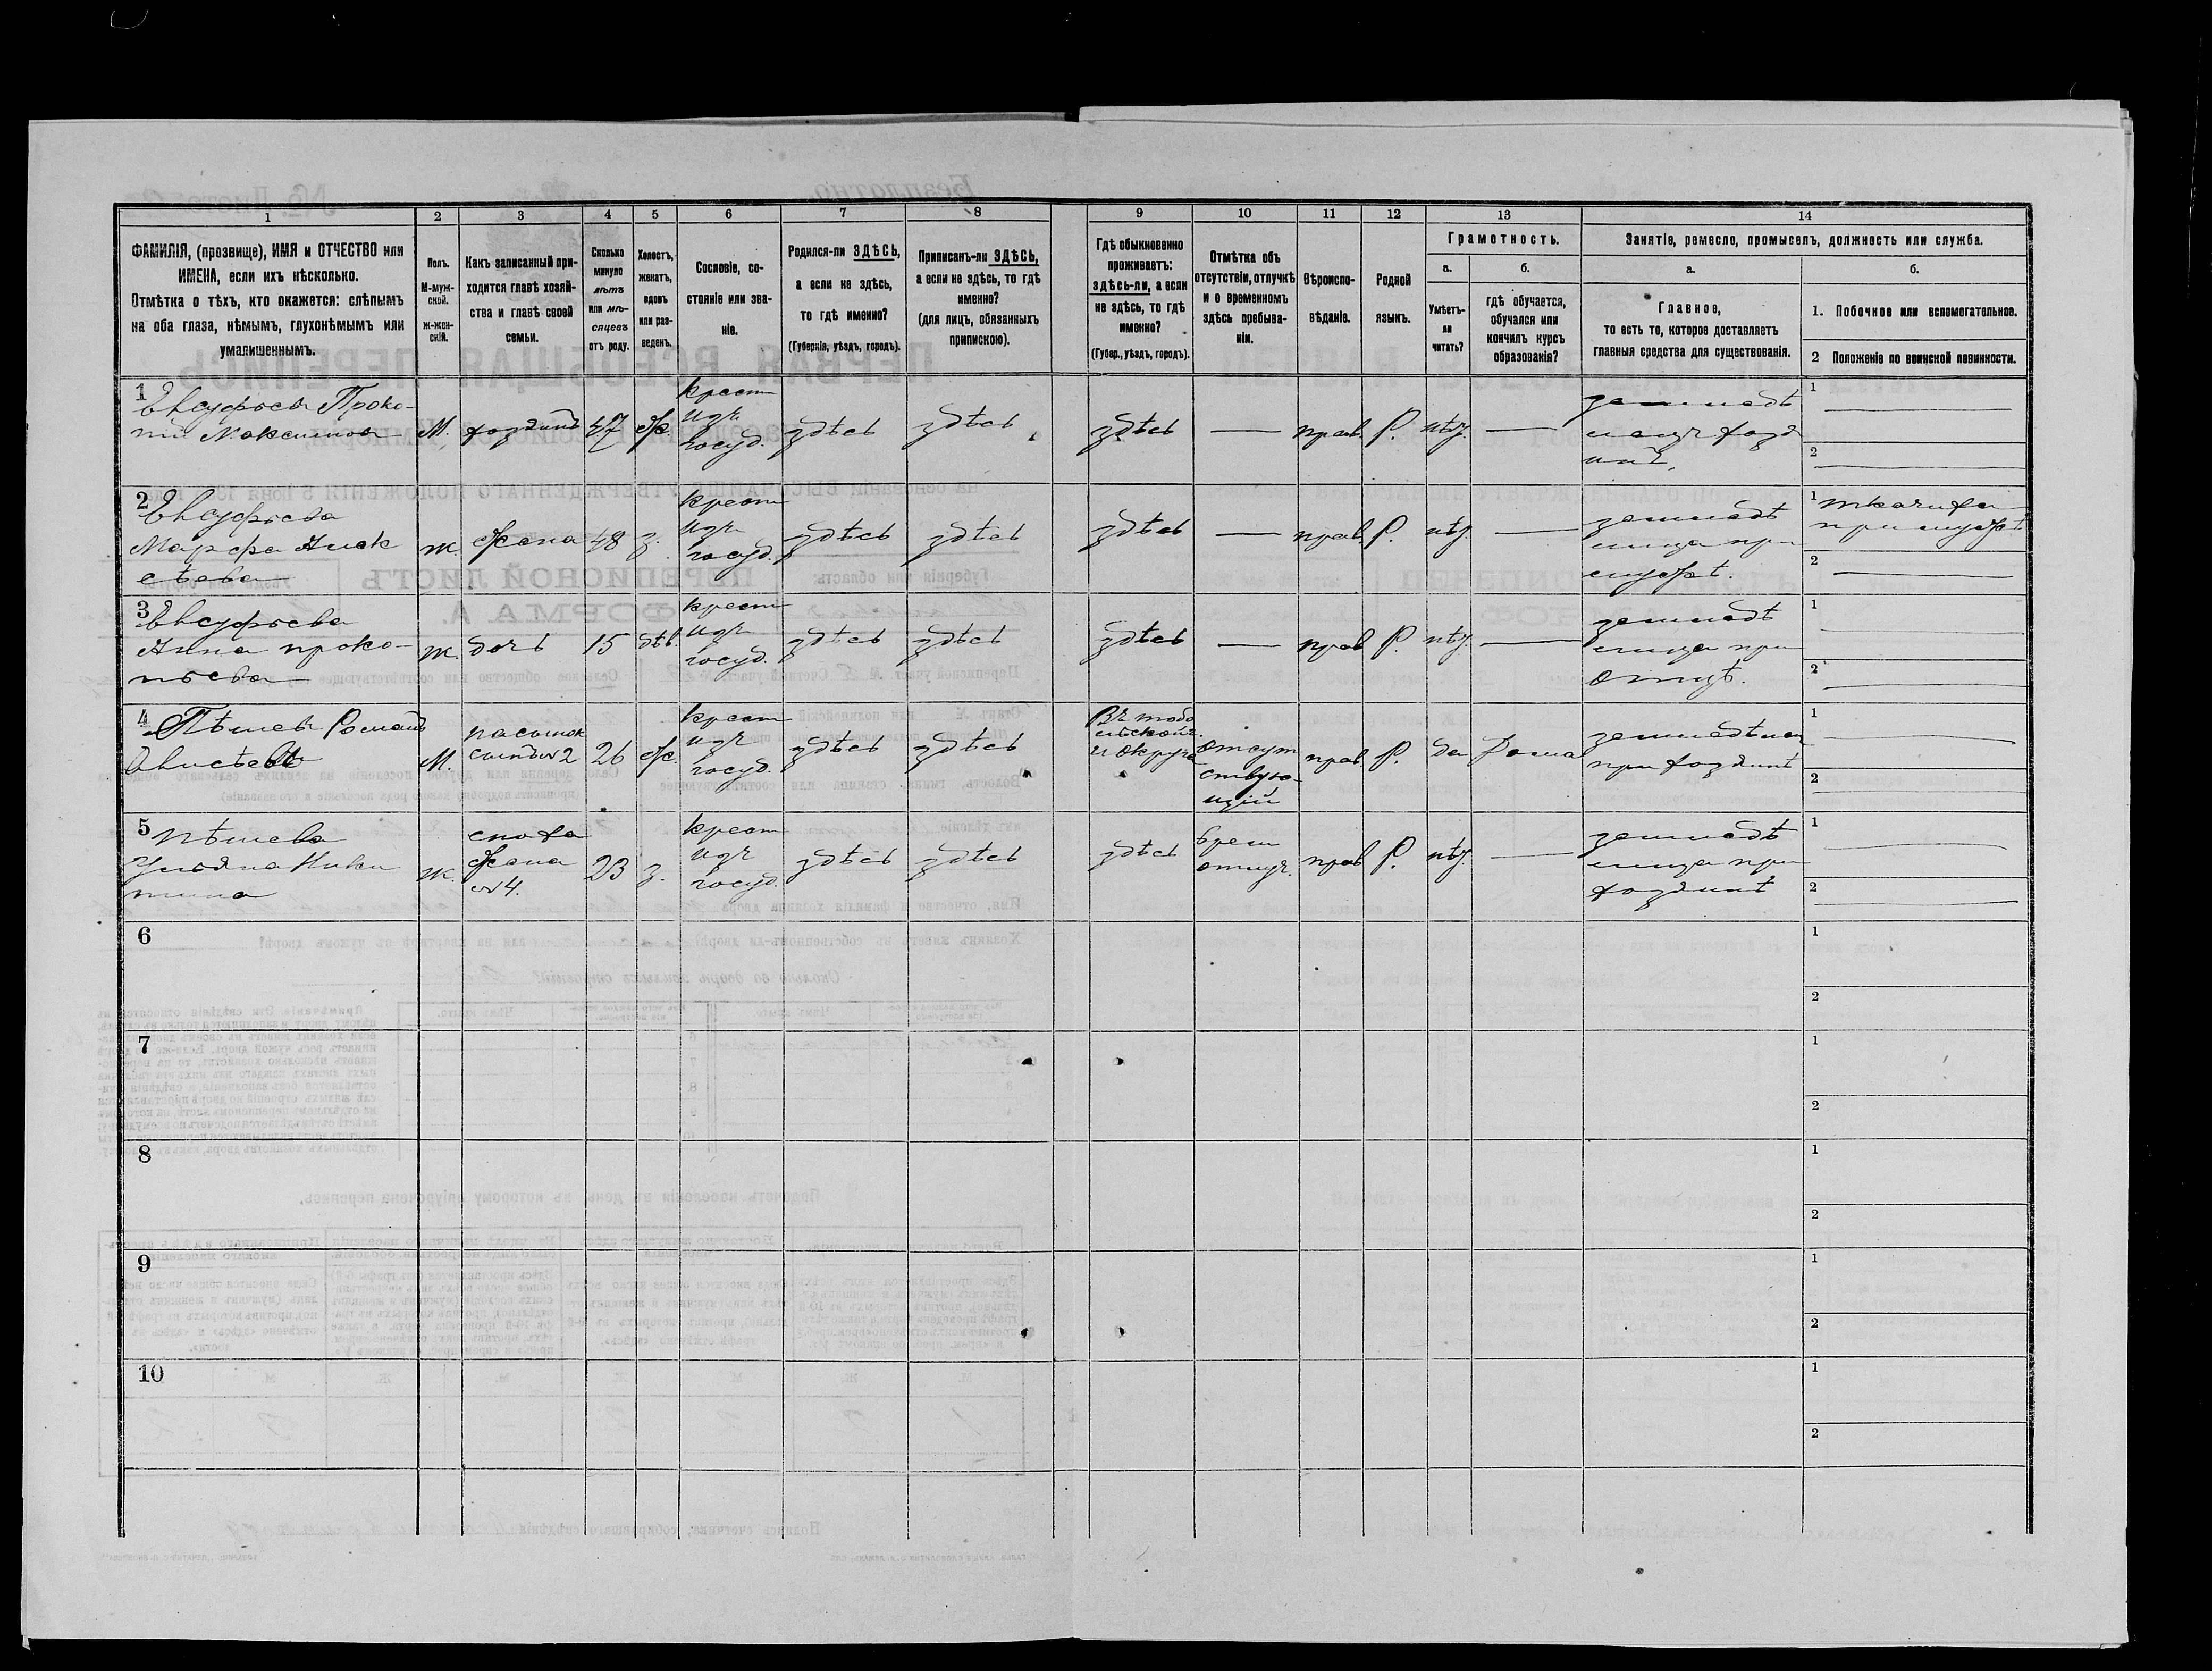 1 2 3 4 5 6 7 8 9 10 11 12 13 14
ФАМИЛІЯ, (прозвище), ИМЯ и ОТЧЕСТВО или
ИМЕНА, если ихъ нѣсколько.
Отмѣтка о тѣхъ, кто окажется: слѣпымъ
на оба глаза, нѣмымъ, глухонѣмымъ или
умалишеннымъ.
Полъ.
М-муж-
ской.
ж-жен-
скій.
Какъ записанный при-
ходится главѣ хозяй-
ства и главѣ своей
семьи.
Сколько
минуло
лѣтъ
или мѣ-
сяцевъ
отъ роду.
Холостъ,
женатъ,
вдовъ
или раз-
веденъ.
Сословіе, со-
стояніе или зва-
ніе.
Родился-ли ЗДѢСЬ,
а если не здѣсь,
то гдѣ именно?
(Губернія, уѣздъ, городъ).
Приписанъ-ли ЗДѢСЬ,
а если не здѣсь, то гдѣ
именно?
(для лицъ, обязанныхъ
припискою).
Гдѣ обыкновенно
проживаетъ:
здѣсь-ли, а если
не здѣсь, то гдѣ
именно?
(Губер., уѣздъ, городъ).
Отмѣтка объ
отсутствіи, отлучкѣ
и о временномъ
здѣсь пребыва-
ніи.
Вѣроиспо-
вѣданіе.
Родной
языкъ.
Грамотность.
а.
Умѣетъ-
ли
читать?
б.
гдѣ обучается,
обучался или
кончилъ курсъ
образованія?
Занятіе, ремесло, промыселъ, должность или служба.
а.
Главное,
то есть то, которое доставляетъ
главныя средства для существованія.
б.
1. Побочное или вспомогательное.
2 Положеніе по воинской повинности.
1
Проко-
пій Максимовъ
М.
хозяинъ
47
ж.
крест
изъ
госуд.
здѣсь
здѣсь
здѣсь
—
прав.
Р.
нѣт.
—
1
2
2
Евсуфьева
Марфа Алек
сѣева
ж.
Жена
48
з.
крест
изъ
госуд.
здѣсь
здѣсь
здѣсь
—
прав.
Р.
нѣт.
—
земледѣ
лица при
мужѣ.
1 ткачиха
при мужѣ
2
3
Евсуфьева
Анна проко-
пьева
ж.
дочь
15
дѣв.
крест
изъ
госуд.
здѣсь
здѣсь
здѣсь
—
прав
Р.
нѣт.
—
земледѣ
лица при
отцѣ.
1
2
4
Романъ
М.
пасынок
26
ж.
крест
изъ
госуд.
здѣсь
здѣсь
Въ тобо
льской г.
и округа
отсут
ствую-
щій
прав.
Р.
да
Дома
земледѣлец
при хозяинѣ
1
2
5
Пѣшева
Ульяна Ники
тина
ж.
сноха
Жена
№4.
23
з.
крест
изъ
госуд.
здѣсь
здѣсь
здѣсь
прав
Р.
нѣт.
—
земледѣ
лица при
хозяинѣ
1
2
6
1
2
7
1
2
8
1
2
9
1
2
10
1
2